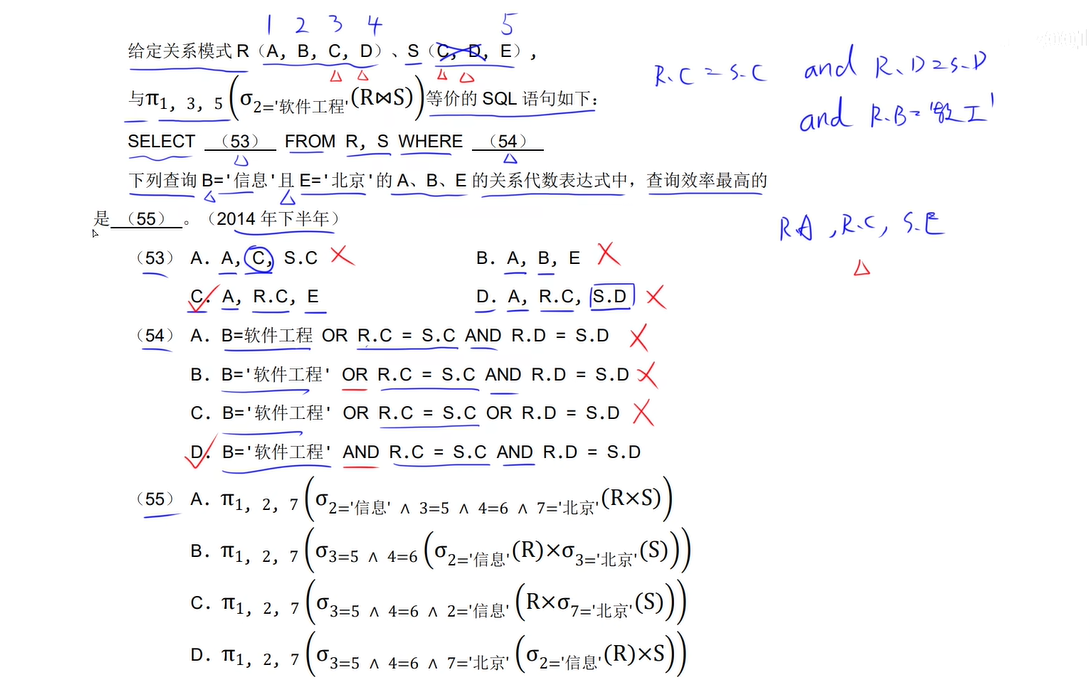 1 2 3 4 5
给定关系模式 R（A, B, C, D）、S（C, D, E），
R.C = S.C and R.D = S.D
与π1, 3, 5(σ2='软件工程'(R⋈S))等价的 SQL 语句如下：
and R.B = '软工'
SELECT （53） FROM R, S WHERE （54）
下列查询 B='信息'且 E='北京'的 A、B、E 的关系代数表达式中，查询效率最高的
是 （55） 。（2014 年下半年）
R.A , R.C, S.E
（53） A. A, C, S.C B. A, B, E
C. A, R.C, E D. A, R.C, S.D
（54） A. B=软件工程 OR R.C = S.C AND R.D = S.D
B. B='软件工程' OR R.C = S.C AND R.D = S.D
C. B='软件工程' OR R.C = S.C OR R.D = S.D
D. B='软件工程' AND R.C = S.C AND R.D = S.D
（55） A. π1, 2, 7(σ2='信息' ∧ 3=5 ∧ 4=6 ∧ 7='北京'(R×S))
B. π1, 2, 7(σ3=5 ∧ 4=6(σ2='信息'(R)×σ3='北京'(S)))
C. π1, 2, 7(σ3=5 ∧ 4=6 ∧ 2='信息'(R×σ7='北京'(S)))
D. π1, 2, 7(σ3=5 ∧ 4=6 ∧ 7='北京'(σ2='信息'(R)×S))